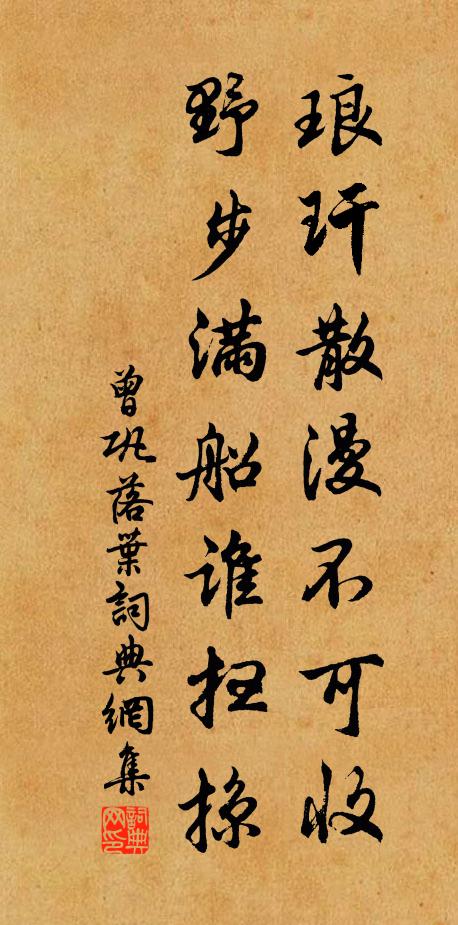 琅玕散漫不可收
野步满船谁扫掠
曾巩落葉詞典網集
詞典网印